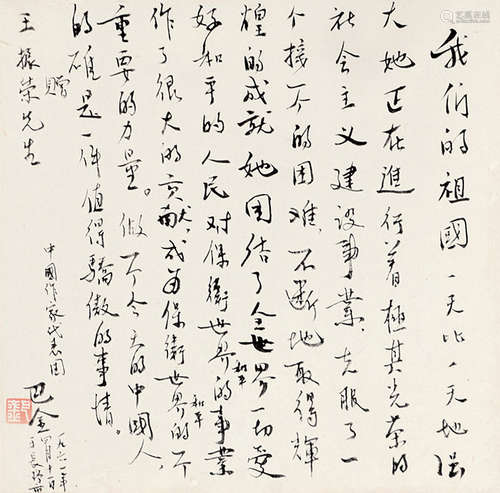 我们的祖國一天比一天地强
大她正在進行着極其光荣的
社会主义建设事業、克服了一
个接一个的困难、不断地取得輝
煌的成就她团结了全世界一切爱
好和平的人民对保衛世界和平的事業
作了很大的贡献、成为保衛世界和平的一个
重要的力量。做一个今天的中國人,
的確是一件值得驕傲的事情。
赠
王振荣先生
中國作家代表团
巴金
一九六一年
四月十一日